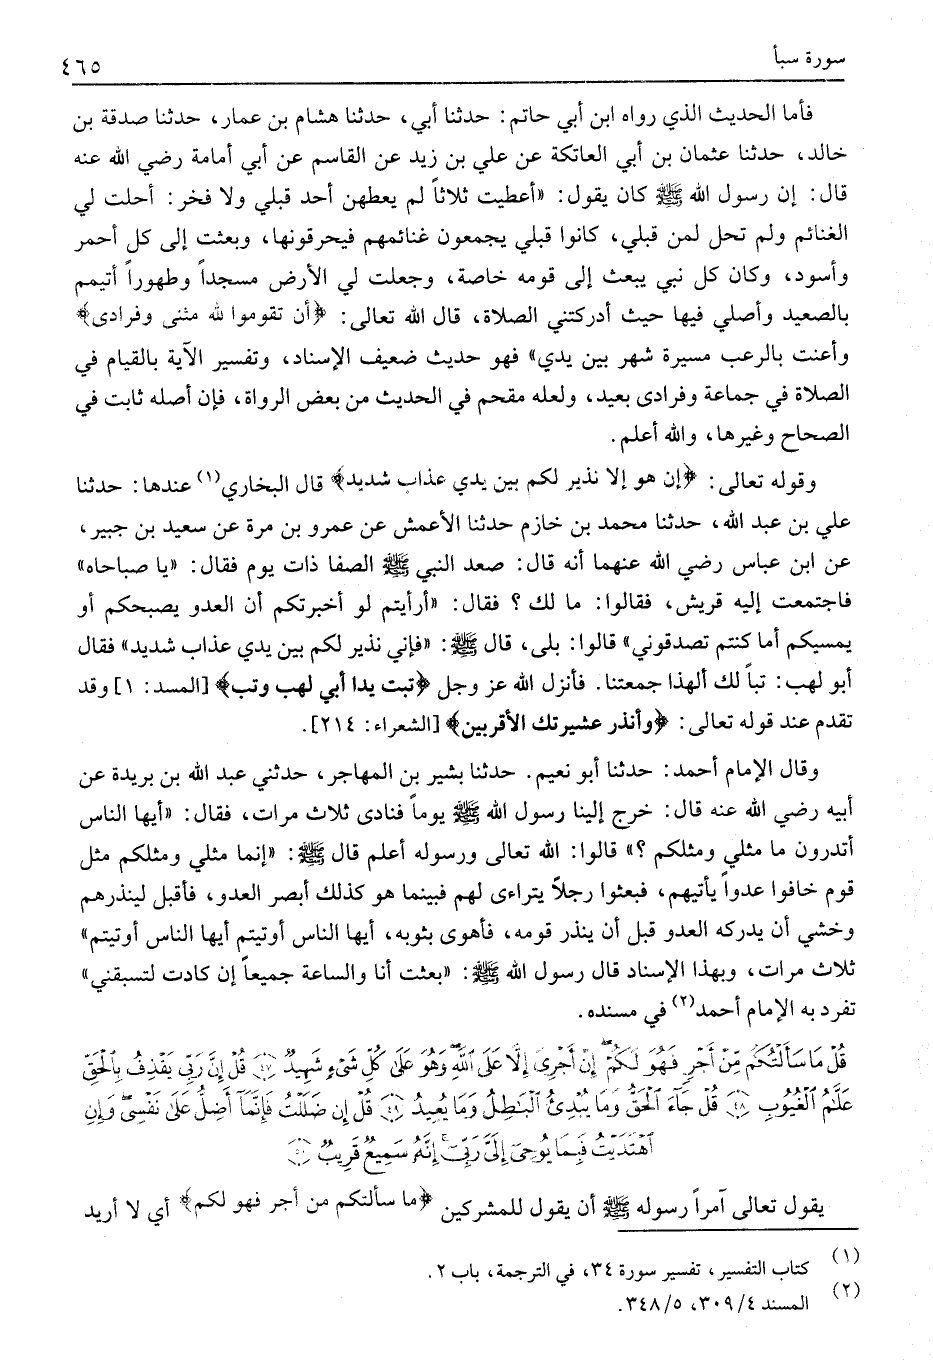 سورة سبأ
٤٦٥
فأما الحديث الذي رواه ابن أبي حاتم: حدثنا أبي، حدثنا هشام بن عمار، حدثنا صدقة بن
خالد، حدثنا عثمان بن أبي العاتكة عن علي بن زيد عن القاسم عن أبي أمامة رضي الله عنه
قال: إن رسول الله ﷺ كان يقول: «أعطيت ثلاثاً لم يعطهن أحد قبلي ولا فخر: أحلت لي
الغنائم ولم تحل لمن قبلي، كانوا قبلي يجمعون غنائمهم فيحرقونها، وبعثت إلى كل أحمر
وأسود، وكان كل نبي يبعث إلى قومه خاصة، وجعلت لي الأرض مسجداً وطهوراً أتيمم
بالصعيد وأصلي فيها حيث أدركتني الصلاة، قال الله تعالى: ﴿أن تقوموا لله مثنى وفرادى﴾
وأعنت بالرعب مسيرة شهر بين يدي» فهو حديث ضعيف الإسناد، وتفسير الآية بالقيام في
الصلاة في جماعة وفرادى بعيد، ولعله مقحم في الحديث من بعض الرواة، فإن أصله ثابت في
الصحاح وغيرها، والله أعلم.
وقوله تعالى: ﴿إن هو إلا نذير لكم بين يدي عذاب شديد﴾ قال البخاري(١) عندها: حدثنا
علي بن عبد الله، حدثنا محمد بن خازم حدثنا الأعمش عن عمرو بن مرة عن سعيد بن جبير،
عن ابن عباس رضي الله عنهما أنه قال: صعد النبي ﷺ الصفا ذات يوم فقال: «يا صباحاه»
فاجتمعت إليه قريش، فقالوا: ما لك؟ فقال: «أرأيتم لو أخبرتكم أن العدو يصبحكم أو
يمسيكم أما كنتم تصدقوني» قالوا: بلى، قال ﷺ: «فإني نذير لكم بين يدي عذاب شديد» فقال
أبو لهب: تباً لك ألهذا جمعتنا. فأنزل الله عز وجل ﴿تبت يدا أبي لهب وتب﴾ [المسد: ١] وقد
تقدم عند قوله تعالى: ﴿وأنذر عشيرتك الأقربين﴾ [الشعراء: ٢١٤].
وقال الإمام أحمد: حدثنا أبو نعيم. حدثنا بشير بن المهاجر، حدثني عبد الله بن بريدة عن
أبيه رضي الله عنه قال: خرج إلينا رسول الله ﷺ يوماً فنادى ثلاث مرات، فقال: «أيها الناس
أتدرون ما مثلي ومثلكم؟» قالوا: الله تعالى ورسوله أعلم قال ﷺ: «إنما مثلي ومثلكم مثل
قوم خافوا عدواً يأتيهم، فبعثوا رجلاً يتراءى لهم فبينما هو كذلك أبصر العدو، فأقبل لينذرهم
وخشي أن يدركه العدو قبل أن ينذر قومه، فأهوى بثوبه، أيها الناس أوتيتم أيها الناس أوتيتم»
ثلاث مرات، وبهذا الإسناد قال رسول الله ﷺ: «بعثت أنا والساعة جميعاً إن كادت لتسبقني»
تفرد به الإمام أحمد(٢) في مسنده.
قُلْ مَا سَأَلْتُكُم مِّنْ أَجْرٍ فَهُوَ لَكُمْ إِنْ أَجْرِيَ إِلَّا عَلَى اللَّهِ وَهُوَ عَلَىٰ كُلِّ شَيْءٍ شَهِيدٌ ٤٧ قُلْ إِنَّ رَبِّي يَقْذِفُ بِالْحَقِّ
عَلَّامُ الْغُيُوبِ ٤٨ قُلْ جَاءَ الْحَقُّ وَمَا يُبْدِئُ الْبَاطِلُ وَمَا يُعِيدُ ٤٩ قُلْ إِن ضَلَلْتُ فَإِنَّمَا أَضِلُّ عَلَىٰ نَفْسِي وَإِنِ
اهْتَدَيْتُ فَبِمَا يُوحِي إِلَيَّ رَبِّي إِنَّهُ سَمِيعٌ قَرِيبٌ ٥٠
يقول تعالى آمراً رسوله ﷺ أن يقول للمشركين ﴿ما سألتكم من أجر فهو لكم﴾ أي لا أريد
(١) كتاب التفسير، تفسير سورة ٣٤، في الترجمة، باب ٢.
(٢) المسند ٣٠٩/٤، ٣٤٨/٥.